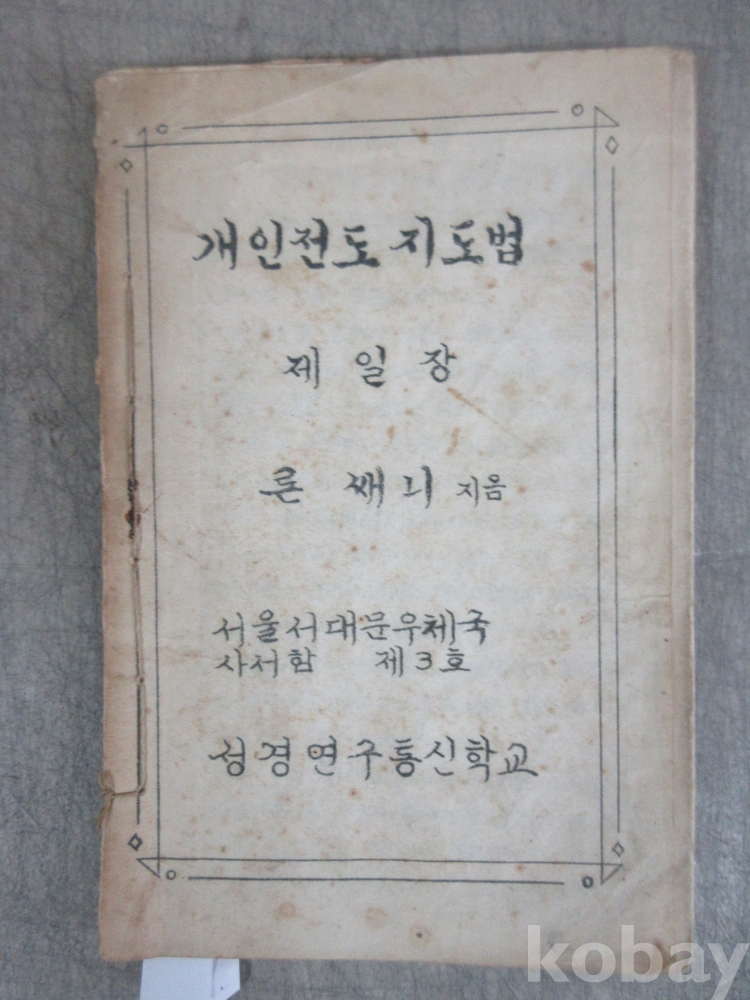 개인전도 지도법
제 일 장
론 쌔늬 지음
서울서대문우체국
사서함 제3호
성경연구통신학교
kobay